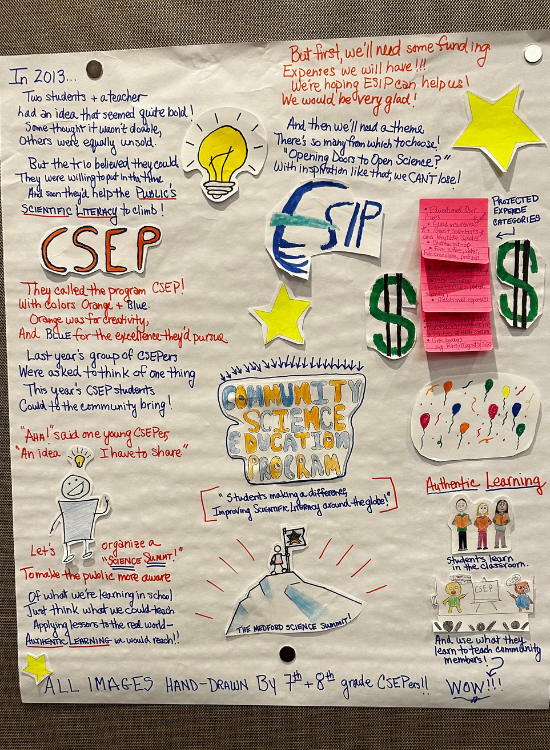 In 2013...
Two students + a teacher
had an idea that seemed quite bold!
Some thought it wasn't doable,
Others were equally unsold.
But the trio believed they could
They were willing to put in the time
And soon they'd help the PUBLIC'S
SCIENTIFIC LITERACY to climb!
CSEP
They called the program CSEP!
With colors Orange + Blue
Orange was for creativity,
And BLUE for the excellence they'd pursue
Last year's group of CSEPers
Were asked to think of one thing
This year's CSEP students
Could to the community bring!
"AHA!" said one young CSEPer,
"An idea I have to share"
Let's organize a
"SCIENCE SUMMIT!"
To make the public more aware
Of what we're learning in school
Just think what we could teach
Applying lessons to the real world—
AUTHENTIC LEARNING we would reach!!
But first, we'll need some funding
Expenses we will have!!!
We're hoping ESIP can help us!
We would be very glad!
And then we'll need a theme
There's so many from which to choose!
"Opening Doors to Open Science?"
With inspiration like that, we CAN'T lose!
ESIP
COMMUNITY
SCIENCE
EDUCATION
PROGRAM
"Students making a difference,
Improving SCIENTIFIC LITERACY around the globe!"
THE MEDFORD SCIENCE SUMMIT!
PROJECTED
EXPENSE
CATEGORIES
$
$
Authentic Learning
Students learn
in the classroom.
CSEP
And use what they
learn to teach community
members!
WOW!!!
ALL IMAGES HAND-DRAWN BY 7th + 8th grade CSEPers!!